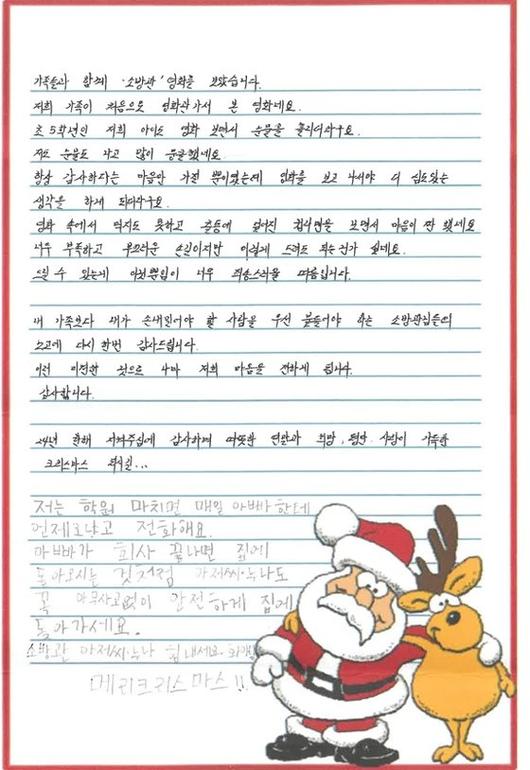 가족들과 함께 '소방관' 영화를 보았습니다.
저희 가족이 처음으로 영화관가서 본 영화네요.
초 5학년인 저희 아이도 영화 보면서 눈물을 흘리더라구요.
저도 눈물도 나고 많이 뭉클했네요.
항상 감사하다는 마음만 가질 뿐이였는데 영화를 보고 나서야 더 심도있는
생각을 하게 되더라구요.
영화 속에서 먹지도 못하고 출동에 컵라면을 보면서 마음이 짠 했네요
너무 부족하고 부끄러운 손길이지만 이렇게 드려도 되는건가 싶네요.
드릴 수 있는게 이것뿐임이 너무 죄송스러울 따름입니다.
내 가족보다 내가 손내밀어야 할 사람을 우선 붙들어야 하는 소방관님들의
노고에 다시 한번 감사드립니다.
이런 것으로 나마 저희 마음을 전하게 됩니다.
감사합니다.
24년 한해 지켜주심에 감사하며 따뜻한 연말과 희망, 평안, 사랑이 가득한
크리스마스 되시길...
저는 학원 마치면 매일 아빠한테
언제오냐고 전화해요.
아빠가 회사 끝나면 집에
돌아오시는 것처럼 아저씨·누나도
꼭 아무사고없이 안전하게 집에
돌아가세요.
소방관 아저씨·누나 힘내세요.
메리크리스마스!!